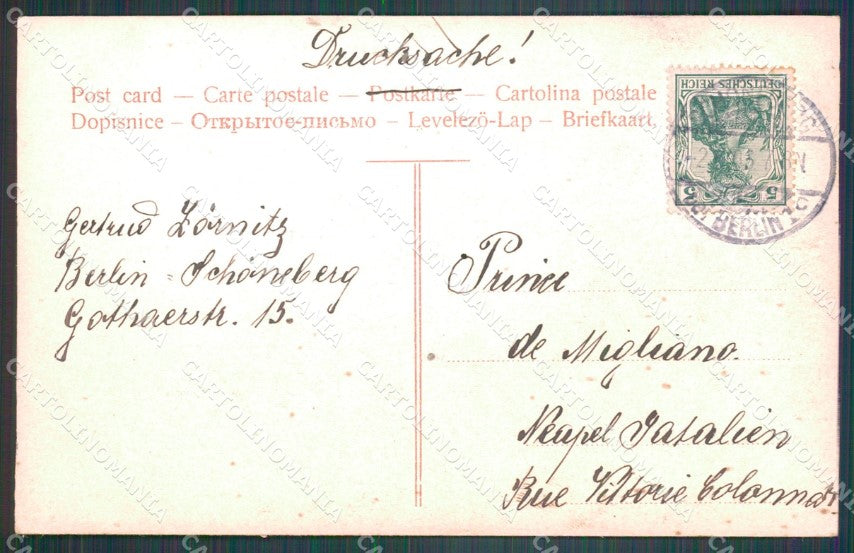 Drucksache!
Post card — Carte postale — Postkarte — Cartolina postale
Dopisnice — Открытое-письмо — Levelezö-Lap — Briefkaart.
DEUTSCHES REICH
5 5
BERLIN
Gertrud Zörnitz
Berlin-Schöneberg
Gothaerstr. 15.
Prince
de Migliano.
Neapel Jatalien
Rue Vittorie Colonna
CARTOLINOMANIA